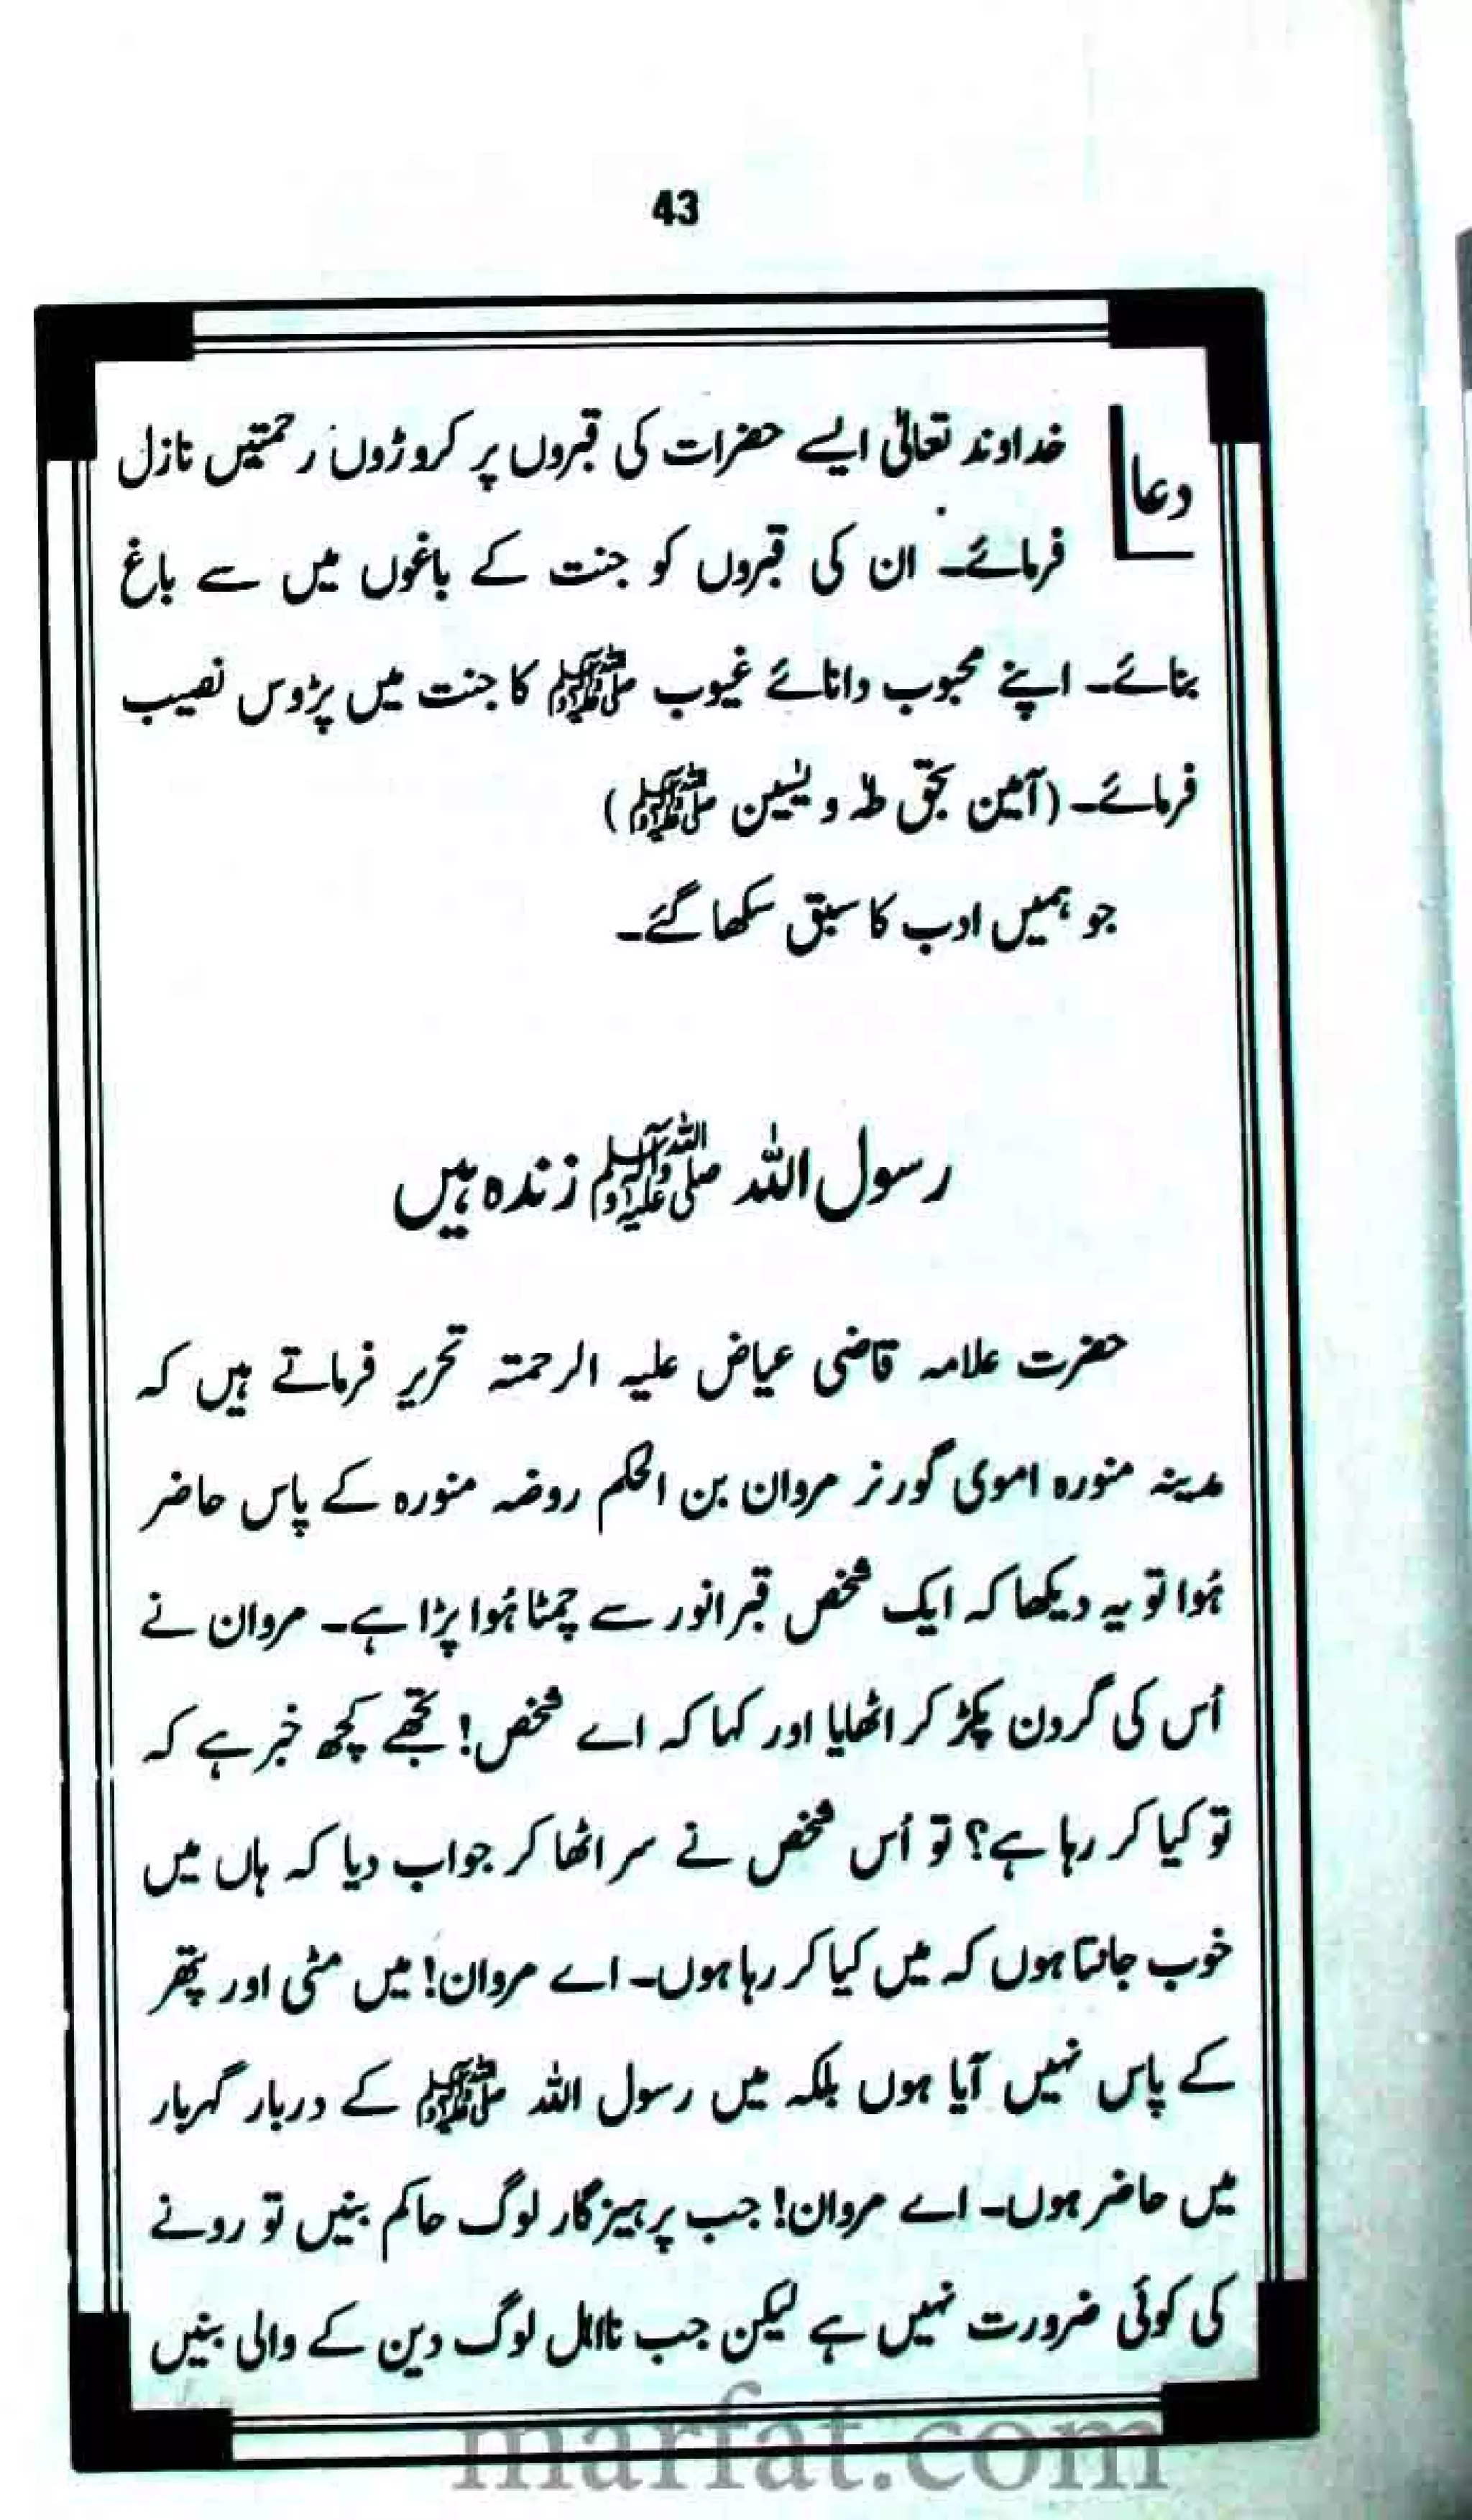 43
دعا
خداوند تعالیٰ ایسے حضرات کی قبروں پر کروڑوں رحمتیں نازل
فرمائے۔ ان کی قبروں کو جنت کے باغوں میں سے باغ
بنائے۔ اپنے محبوب دانائے غیوب ﷺ کا جنت میں پڑوس نصیب
فرمائے۔ (آمین بحق طہٰ و یٰسین ﷺ)
جو ہمیں ادب کا سبق سکھا گئے۔
رسول اللہ ﷺ زندہ ہیں
حضرت علامہ قاضی عیاض علیہ الرحمتہ تحریر فرماتے ہیں کہ
مدینہ منورہ اموی گورنر مروان بن الحکم روضہ منورہ کے پاس حاضر
ہُوا تو یہ دیکھا کہ ایک شخص قبر انور سے چمٹا ہُوا پڑا ہے۔ مروان نے
اُس کی گردن پکڑ کر اٹھایا اور کہا کہ اے شخص! تجھے کچھ خبر ہے کہ
تو کیا کر رہا ہے؟ تو اُس شخص نے سر اٹھا کر جواب دیا کہ ہاں میں
خوب جانتا ہوں کہ میں کیا کر رہا ہوں۔ اے مروان! میں مٹی اور پتھر
کے پاس نہیں آیا ہوں بلکہ میں رسول اللہ ﷺ کے دربار گہربار
میں حاضر ہوں۔ اے مروان! جب پرہیزگار لوگ حاکم بنیں تو رونے
کی کوئی ضرورت نہیں ہے لیکن جب نااہل لوگ دین کے والی بنیں
marfat.com